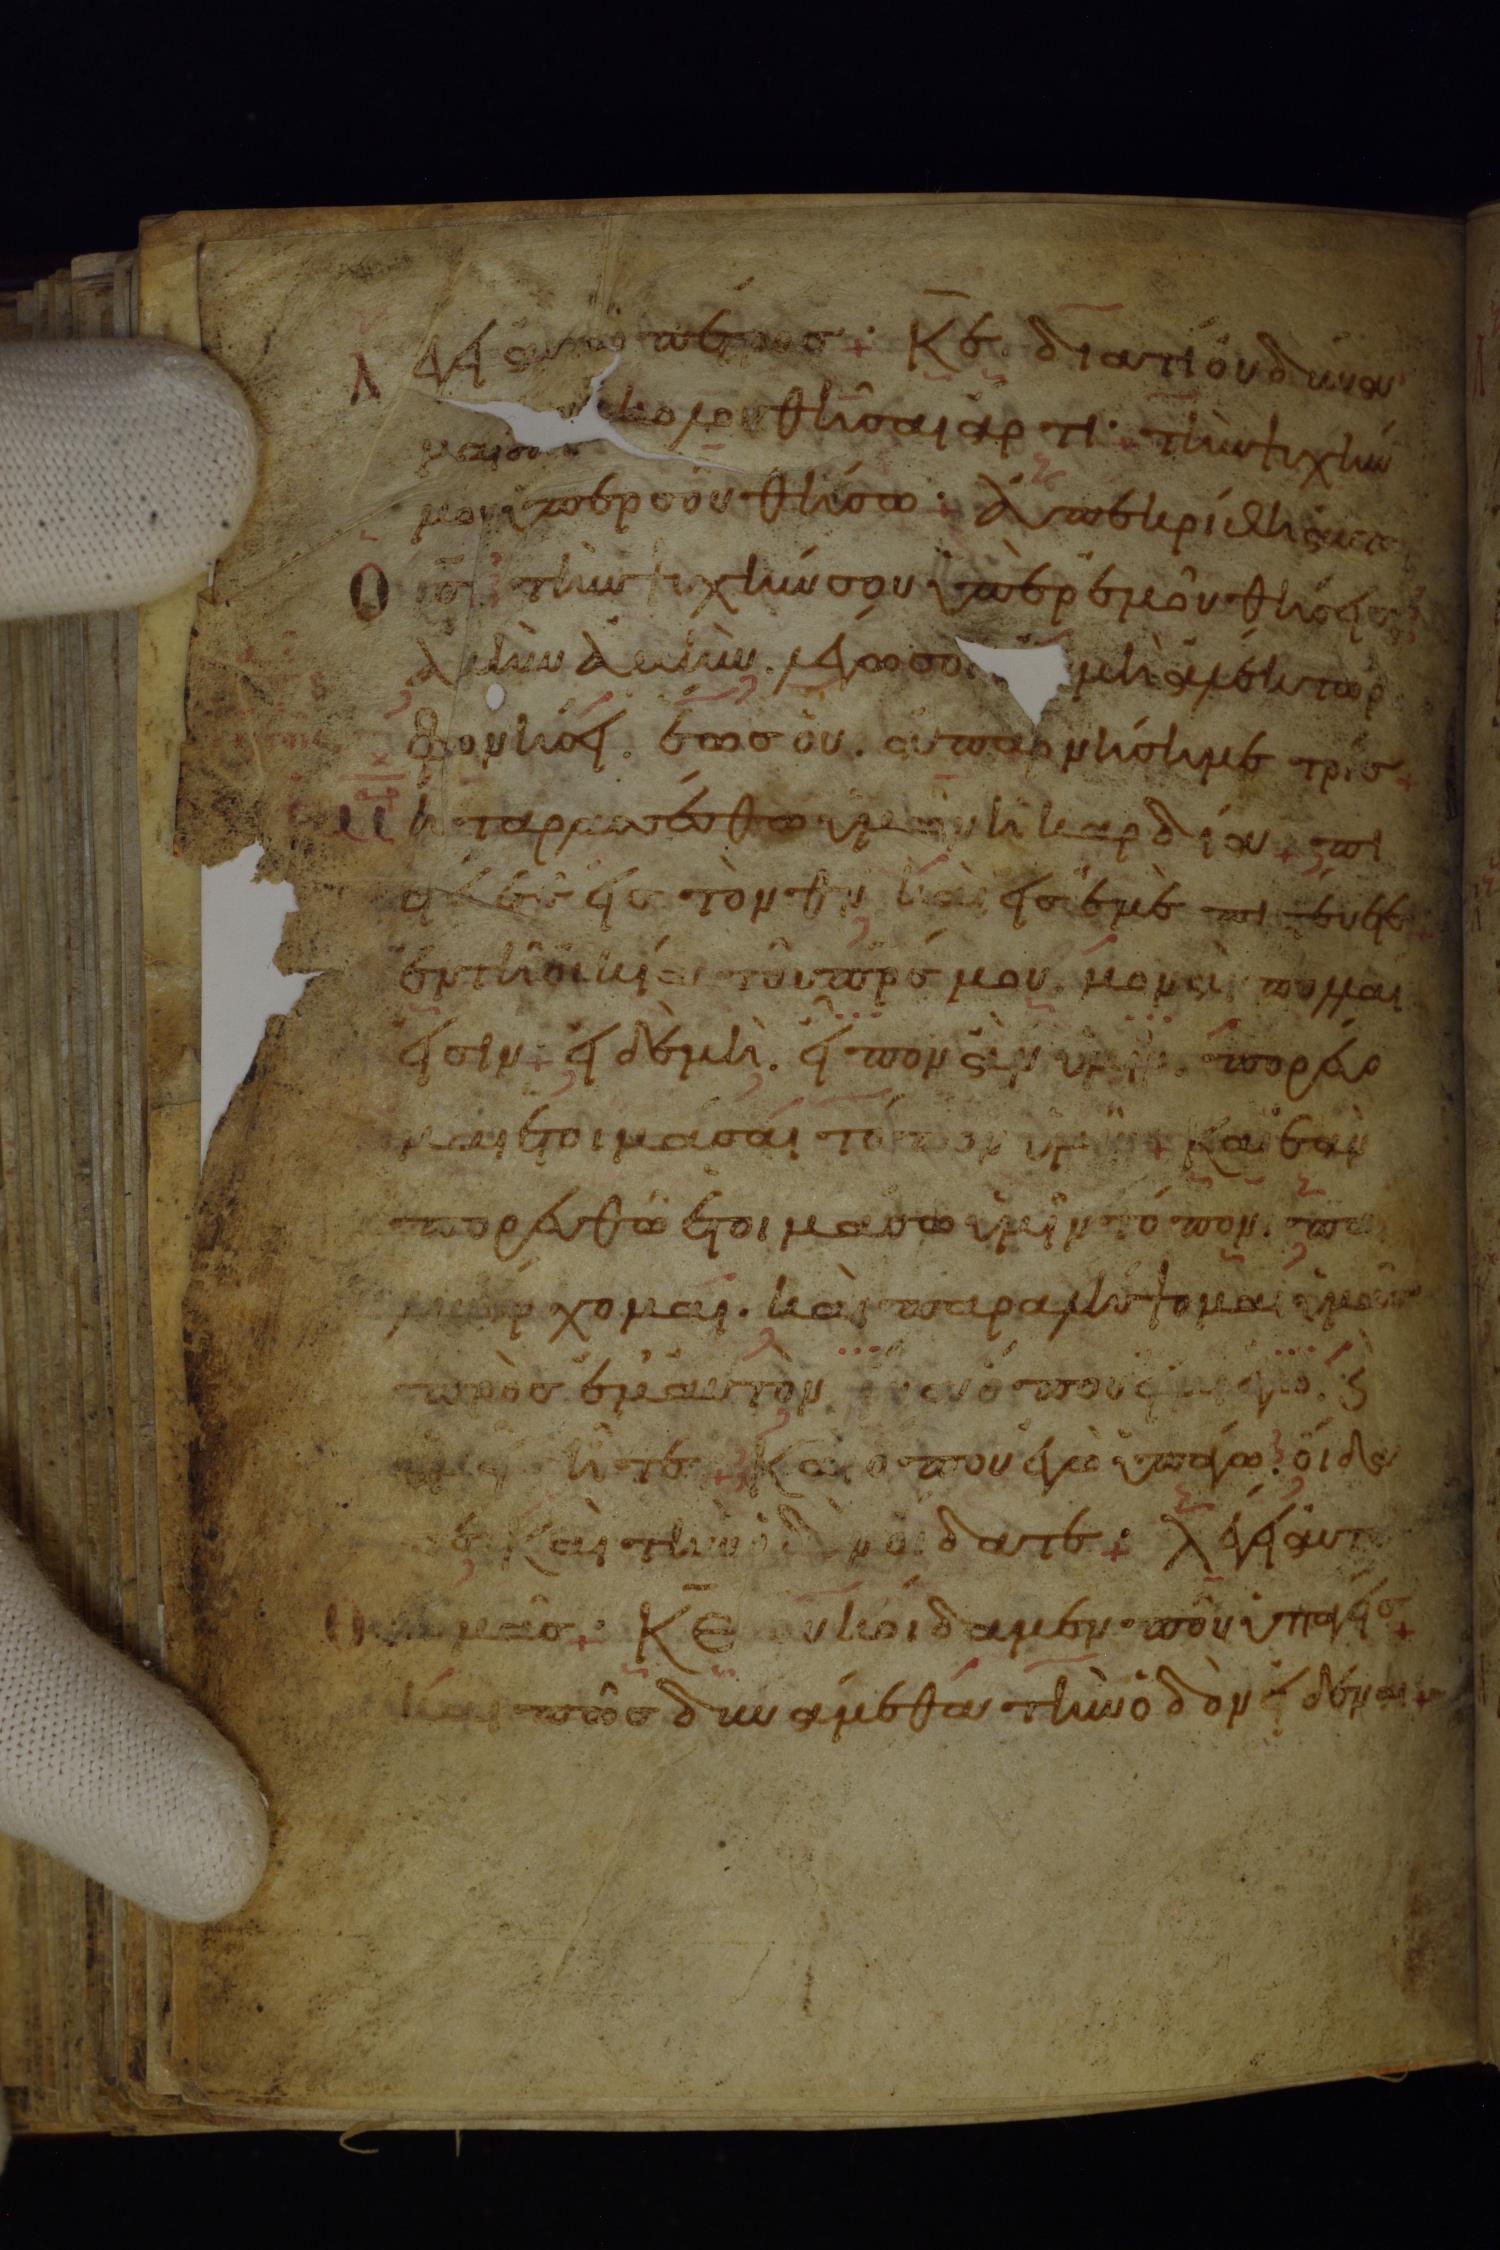 λέγει αὐτῶ πέτρος· Κε διατί οὐ δύνα
μαί σοι ἀκολουθῆσαι ἄρτι· τὴν ψυχήν
μου ὑπὲρ σοῦ θήσω· Ἀπεκρίθη αὐτῶ
Ο ις τὴν ψυχήν σου ὑπὲρ ἐμοῦ θήσεις
ἀμὴν ἀμὴν λέγω σοι μὴ ἀλέκτωρ
φωνήσει. ἕως οὗ. ἀπαρνήσημε τρίς
Μὴ ταρασσέσθω ὑμῶν ἡ καρδία· πι
στεύετε εἰς τὸν θν καὶ εἰς ἐμὲ πιστεύετε
ἐν τῆ οἰκία τοῦ πρς μου. μοναὶ πολλαί
εἰσιν· εἰ δὲ μὴ. εἶπον ἂν ὑμῖν. πορεύο
μαι ἑτοιμάσαι τόπον ὑμῖν· Καὶ ἐὰν
πορευθῶ ἑτοιμάσω ὑμῖν τόπον. πά
λιν ἔρχομαι. καὶ παραλήψομαι ὑμᾶς
πρὸς ἐμαυτὸν. ἵνα ὅπου εἰμὶ ἐγώ. κ
ὑμεῖς ἦτε· Καὶ ὅπου ἐγὼ ὑπάγω. οἴδα
τε καὶ τὴν ὁδὸν οἴδατε· λέγει αὐτῶ
Θωμᾶς· Κε οὐκ οἴδαμεν ποῦ ὑπάγεις
καὶ πῶς δυνάμεθα τὴν ὁδὸν εἰδέναι